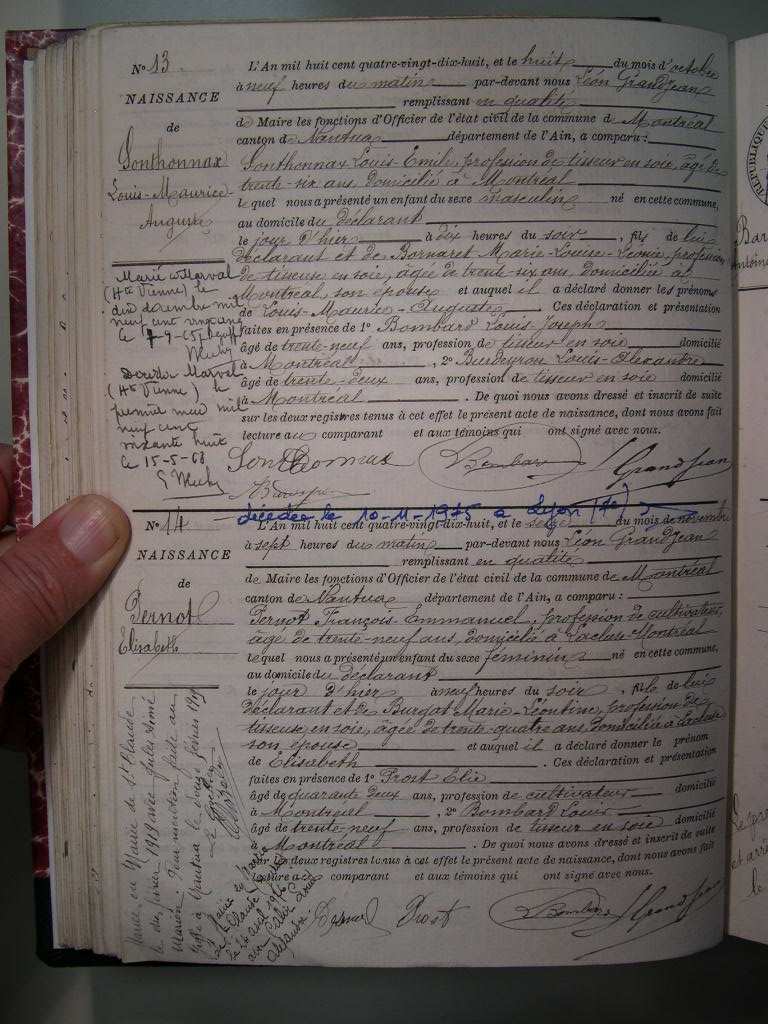 N° 13
NAISSANCE
de
Sonthonnax
Louis-Maurice-
Auguste
L'An mil huit cent quatre-vingt-dix-huit, et le huit du mois d'octobre
à neuf heures du matin par-devant nous Léon Grandjean
remplissant en qualité
de Maire les fonctions d'Officier de l'état civil de la commune de Montréal
canton de Nantua département de l'Ain, a comparu :
Sonthonnax Louis-Emile, profession de tisseur en soie, âgé de
trente-six ans, domicilié à Montréal
le quel nous a présenté un enfant du sexe masculin né en cette commune,
au domicile du déclarant
le jour d'hier à dix heures du soir, fils de lui
déclarant et de Bornaret Marie-Louise-Léonie, profession
de tisseuse en soie, âgée de trente-six ans, domiciliée à
Montréal, son épouse et auquel il a déclaré donner les prénoms
de Louis-Maurice-Auguste. Ces déclaration et présentation
faites en présence de 1° Bombard Louis-Joseph
âgé de trente-neuf ans, profession de tisseur en soie domicilié
à Montréal, 2° Burdeyron Louis-Alexandre
âgé de trente-deux ans, profession de tisseur en soie domicilié
à Montréal. De quoi nous avons dressé et inscrit de suite
sur les deux registres tenus à cet effet le présent acte de naissance, dont nous avons fait
lecture au comparant et aux témoins qui ont signé avec nous.
Sonthonnax Bombard L Grandjean
Marié à Marval
(Hte Vienne) le
dix décembre mil
neuf cent
le 7-9-65
Marval
(Hte Vienne) le
premier mil
neuf cent
soixante huit
le 15-5-68
décédée le 10-11-1975 à Lyon (7e)
N° 14
NAISSANCE
de
Pernot
Elisabeth
L'An mil huit cent quatre-vingt-dix-huit, et le seize du mois de novembre
à sept heures du matin par-devant nous Léon Grandjean
remplissant en qualité
de Maire les fonctions d'Officier de l'état civil de la commune de Montréal
canton de Nantua département de l'Ain, a comparu :
Pernot François-Emmanuel, profession de cultivateur,
âgé de trente-neuf ans, domicilié à Montréal
le quel nous a présenté un enfant du sexe féminin né en cette commune,
au domicile du déclarant
le jour d'hier à neuf heures du soir, fille de lui
déclarant et de Burgat Marie-Léontine, profession de
tisseuse en soie, âgée de trente-quatre ans domiciliée à
son épouse et auquel il a déclaré donner le prénom
de Elisabeth. Ces déclaration et présentation
faites en présence de 1° Prost Elie
âgé de quarante deux ans, profession de cultivateur domicilié
à Montréal, 2° Bombard Louis
âgé de trente-neuf ans, profession de tisseur en soie domicilié
à Montréal. De quoi nous avons dressé et inscrit de suite
sur les deux registres tenus à cet effet le présent acte de naissance, dont nous avons fait
lecture au comparant et aux témoins qui ont signé avec nous.
Pernot Prost Bombard L Grandjean
en Mairie de St Claude
1919 avec Jules
faite au
greffe à Nantua le février 1919